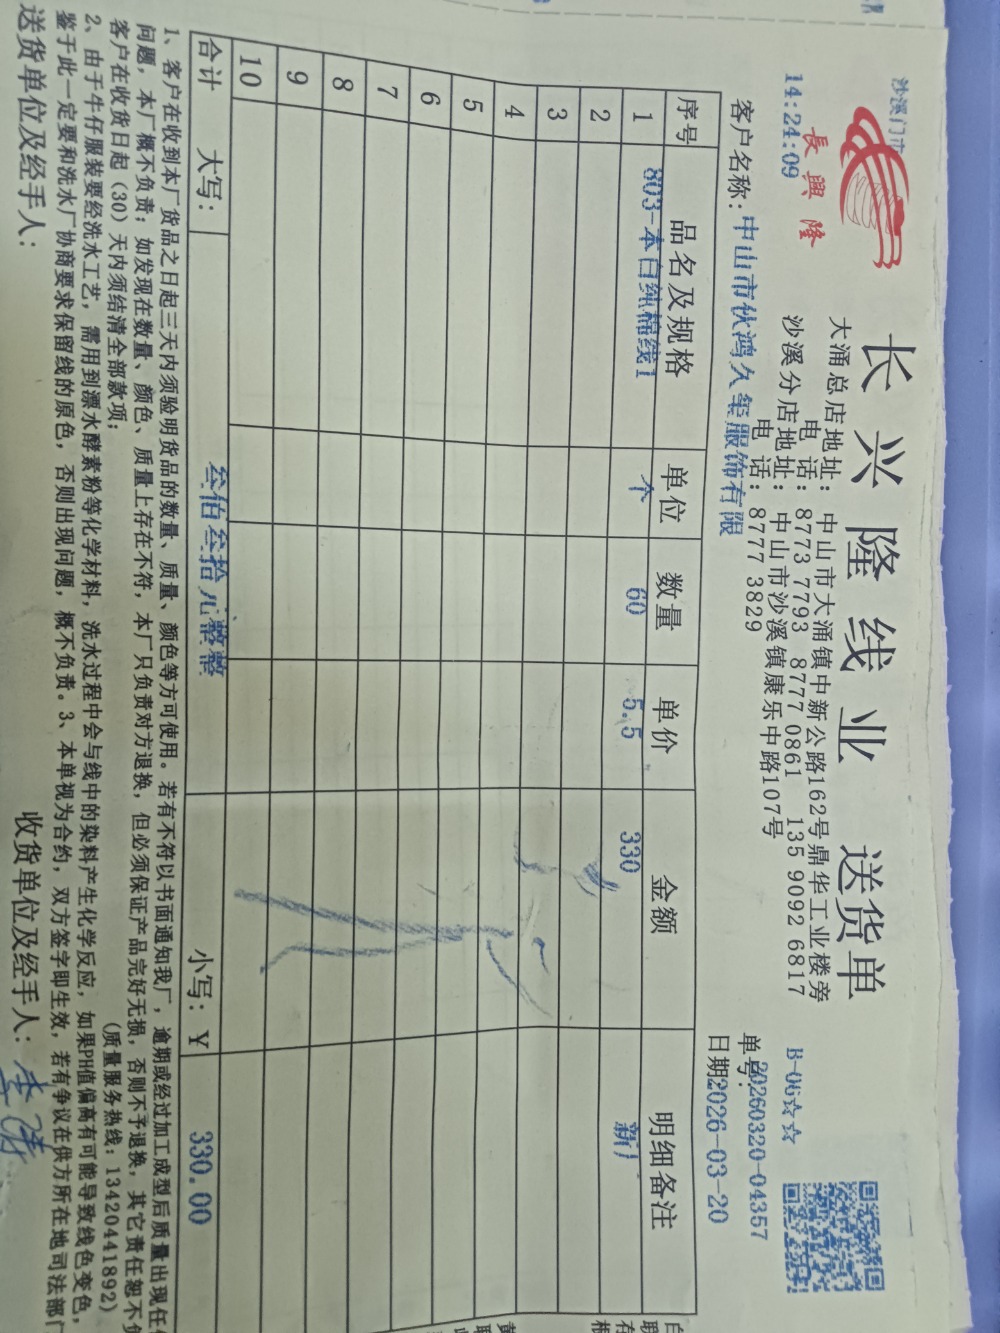 沙溪门市
長興隆
14:24:09
长兴隆线业 送货单
大涌总店地址：中山市大涌镇中新公路162号鼎华工业楼旁
电 话：8773 7793 8777 0861 135 9092 6817
沙溪分店地址：中山市沙溪镇康乐中路107号
电 话：8777 3829
B-06☆☆
单号：20260320-04357
客户名称：中山市伙鸿久玺服饰有限
日期2026-03-20
序号 品名及规格 单位 数量 单价 金额 明细备注
1 803-本白纯棉线1 个 60 5.5 330 新厂
2
3
4
5
6
7
8
9
10
合计 大写：叁佰叁拾元整整 小写：￥ 330.00
1、客户在收到本厂货品之日起三天内须验明货品的数量、质量、颜色等方可使用。若有不符以书面通知我厂，逾期或经过加工成型后质量出现任
问题，本厂概不负责；如发现在数量、颜色、质量上存在不符，本厂只负责对方退换，但必须保证产品完好无损，否则不予退换，其它责任恕不
客户在收货日起（30）天内须结清全部款项； (质量服务热线：13420441892)
2、由于牛仔服装要经洗水工艺，需用到漂水酵素粉等化学材料，洗水过程中会与线中的染料产生化学反应，如果PH值偏高有可能导致线色变色，
鉴于此一定要和洗水厂协商要求保留线的原色，否则出现问题，概不负责。3、本单视为合约，双方签字即生效，若有争议在供方所在地司法部门
送货单位及经手人： 收货单位及经手人：